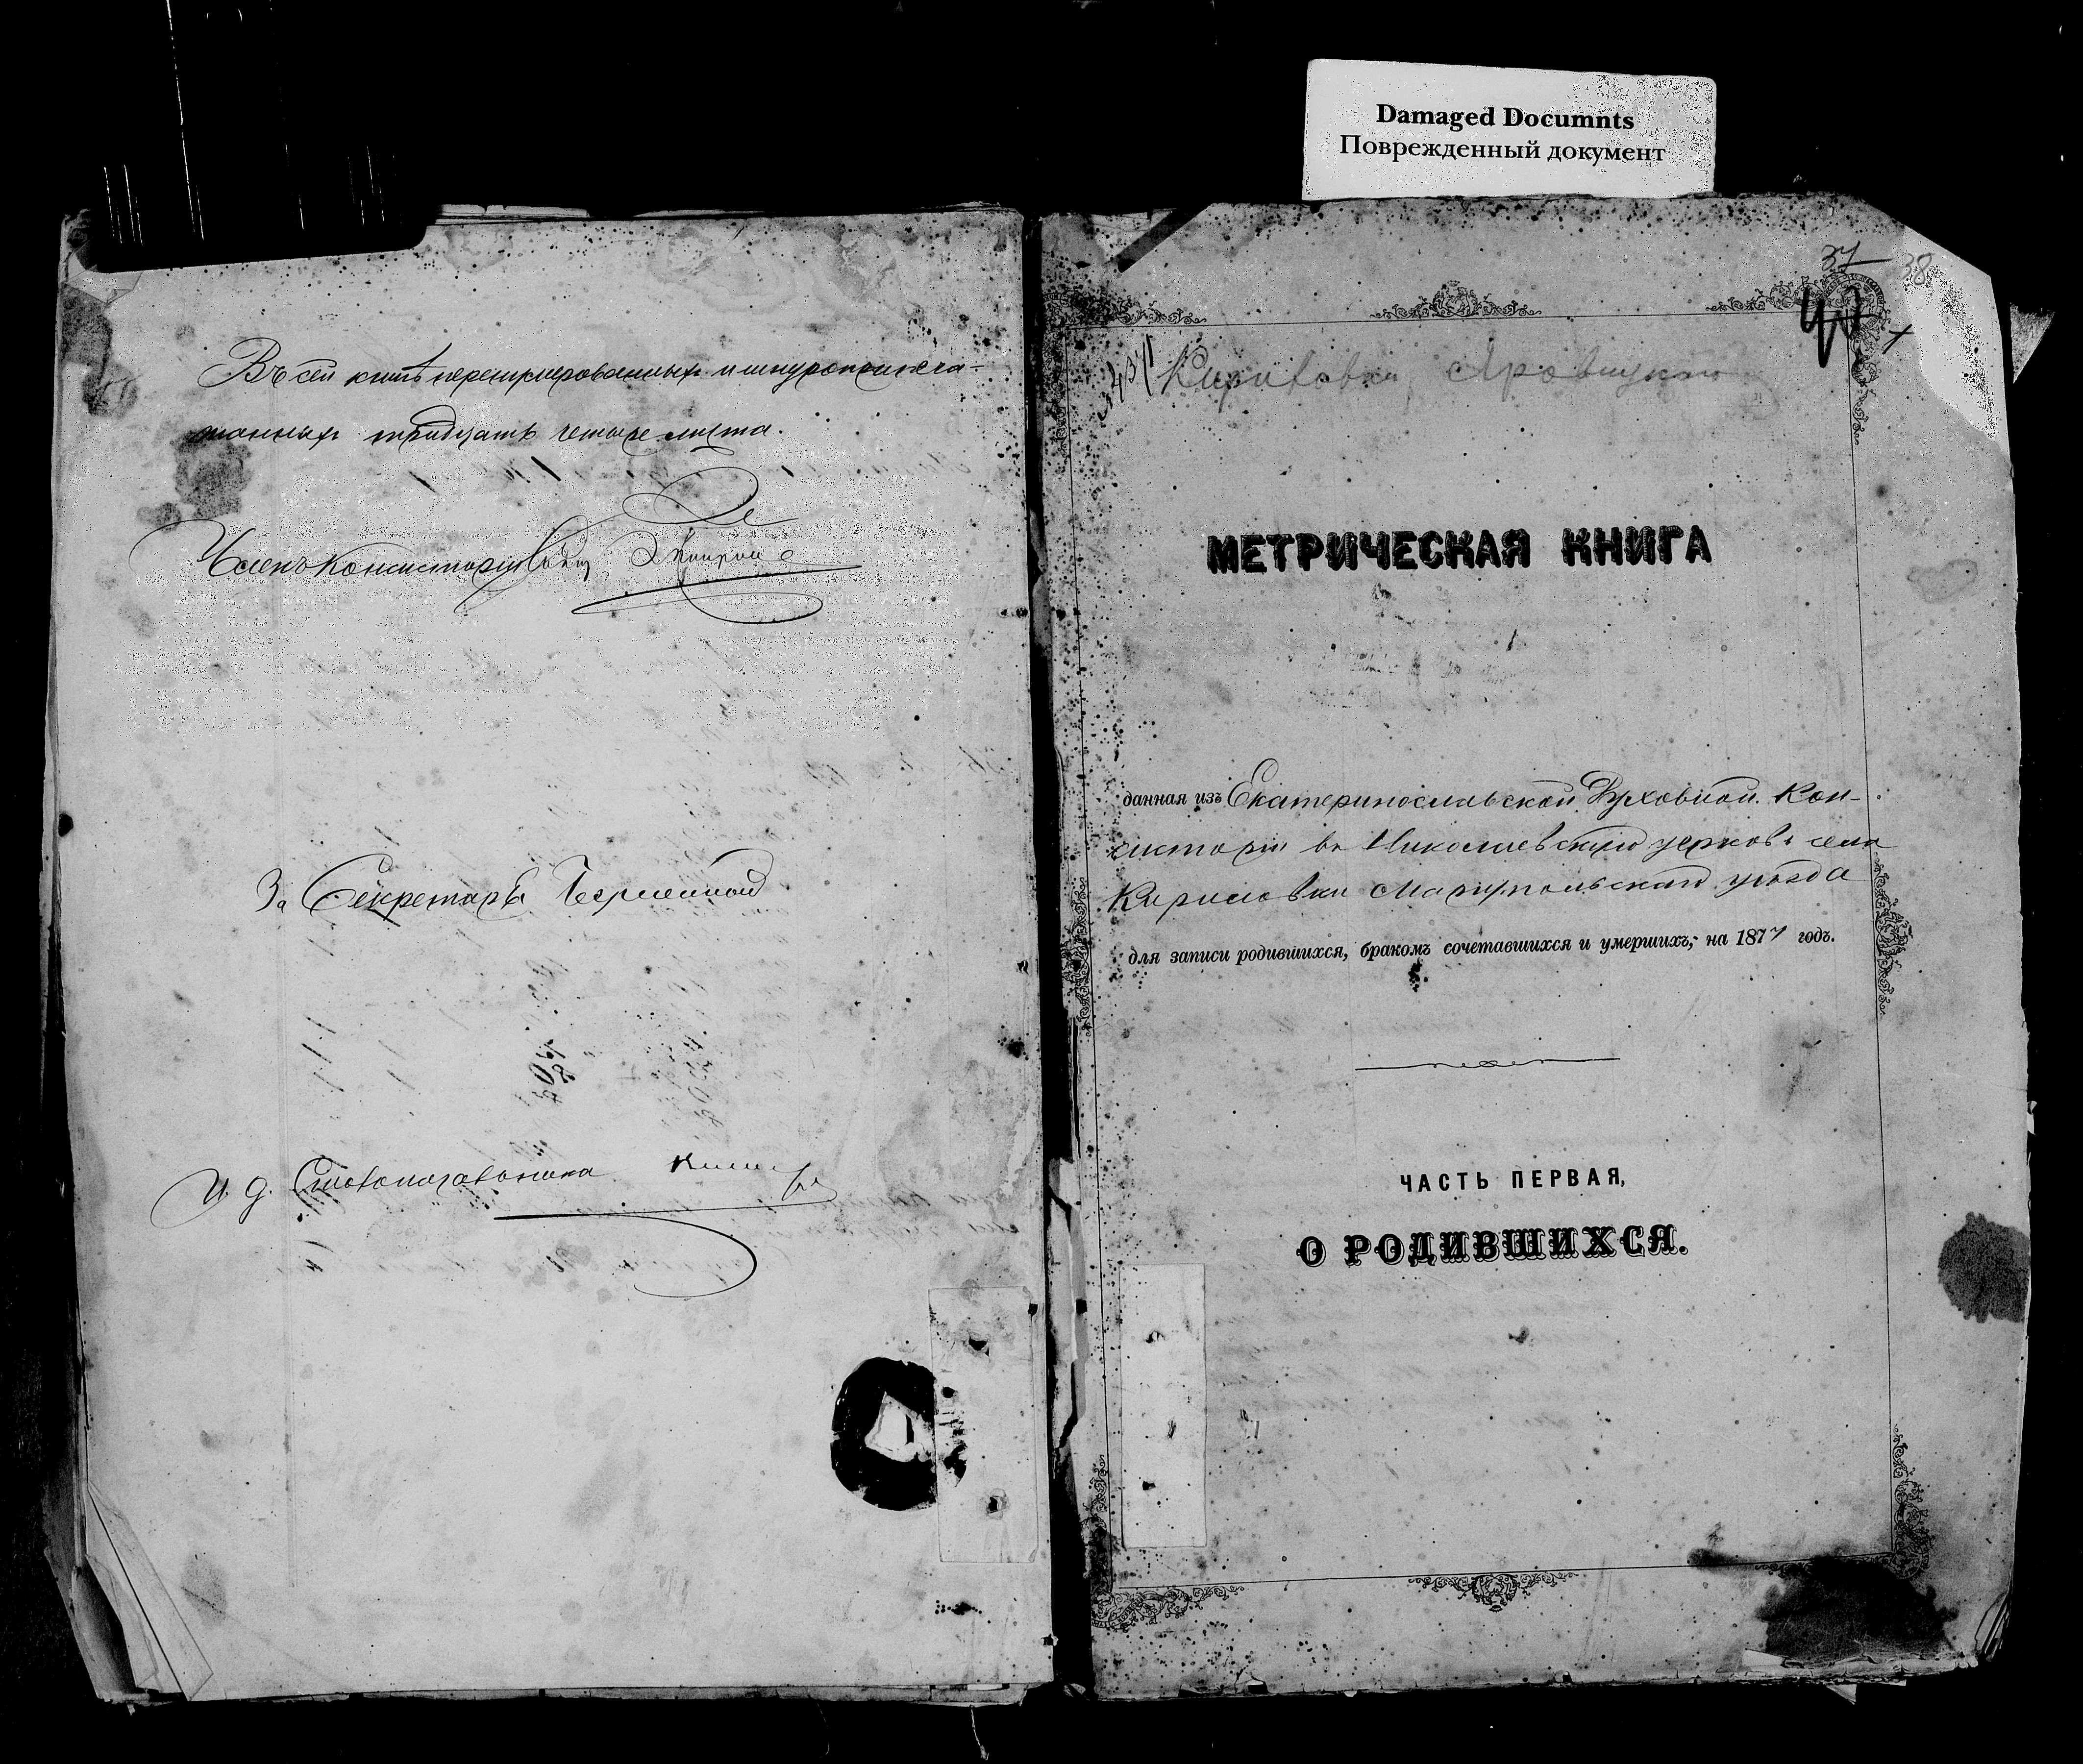 Damaged Documnts
Поврежденный документ
Въ сей книгѣ перенумерованныхъ и шнуроприпеча-
танныхъ тридцать четыре листа.
Членъ Консисторіи
За Секретаря
И. д. Столоначальника
37 38
40
МЕТРИЧЕСКАЯ КНИГА
данная изъ Екатеринославской Духовной Кон-
систоріи въ Николаевскую церковь села
Кириловки Маріупольскаго уѣзда
для записи родившихся, бракомъ сочетавшихся и умершихъ, на 1877 годъ.
ЧАСТЬ ПЕРВАЯ,
О РОДИВШИХСЯ.